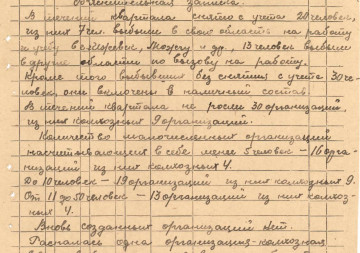 объяснительная записка.
В течении квартала снято с учета 20 человек,
из них 7 чел. выбыли в свою область на работу
и учебу в и др., 13 человек выбыли
в другие области по вызову на работу.
Кроме того выбывших без снятия с учета 30 чело-
век, они включены в наличный состав.
В течений квартала не росли 30 организаций,
из них колхозных 9 организаций.
Количество малочисленных организаций
насчитывающих в себе менее 5 человек — 16 орга-
низаций из них колхозных 4.
До 10 человек — 19 организаций из них колхозных 9.
От 11 до 50 человек — 13 организаций из них колхоз-
ных 4.
Вновь созданных организаций нет.
Распалась одна организация-колхозная